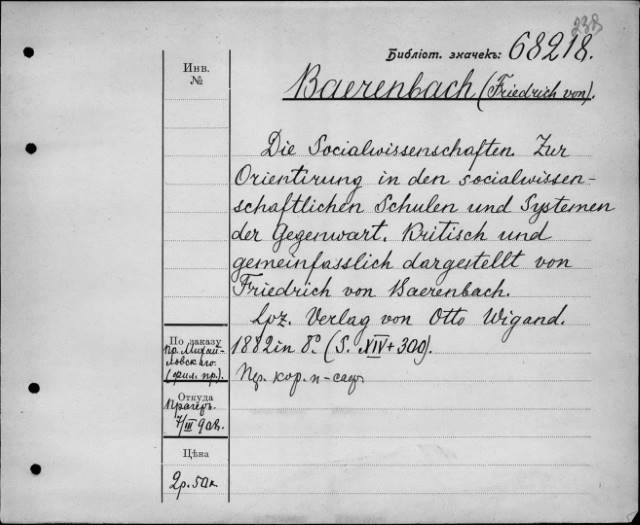 238
Библіот. значекъ: 68218.
Инв.
№
Baerenbach (Friedrich von).
Die Socialwissenschaften. Zur
Orientirung in den socialwissen-
schaftlichen Schulen und Systemen
der Gegenwart. Kritisch und
gemeinfasslich dargestellt von
Friedrich von Baerenbach.
Lpz. Verlag von Otto Wigand.
1882 in 8º. (S. XIV + 300).
Пр. кор. п-саф.
По заказу
пр. Михай-
ловскаго.
(фил. пр.).
Откуда
Прагеръ.
7/III 908.
Цѣна
2р. 50к.